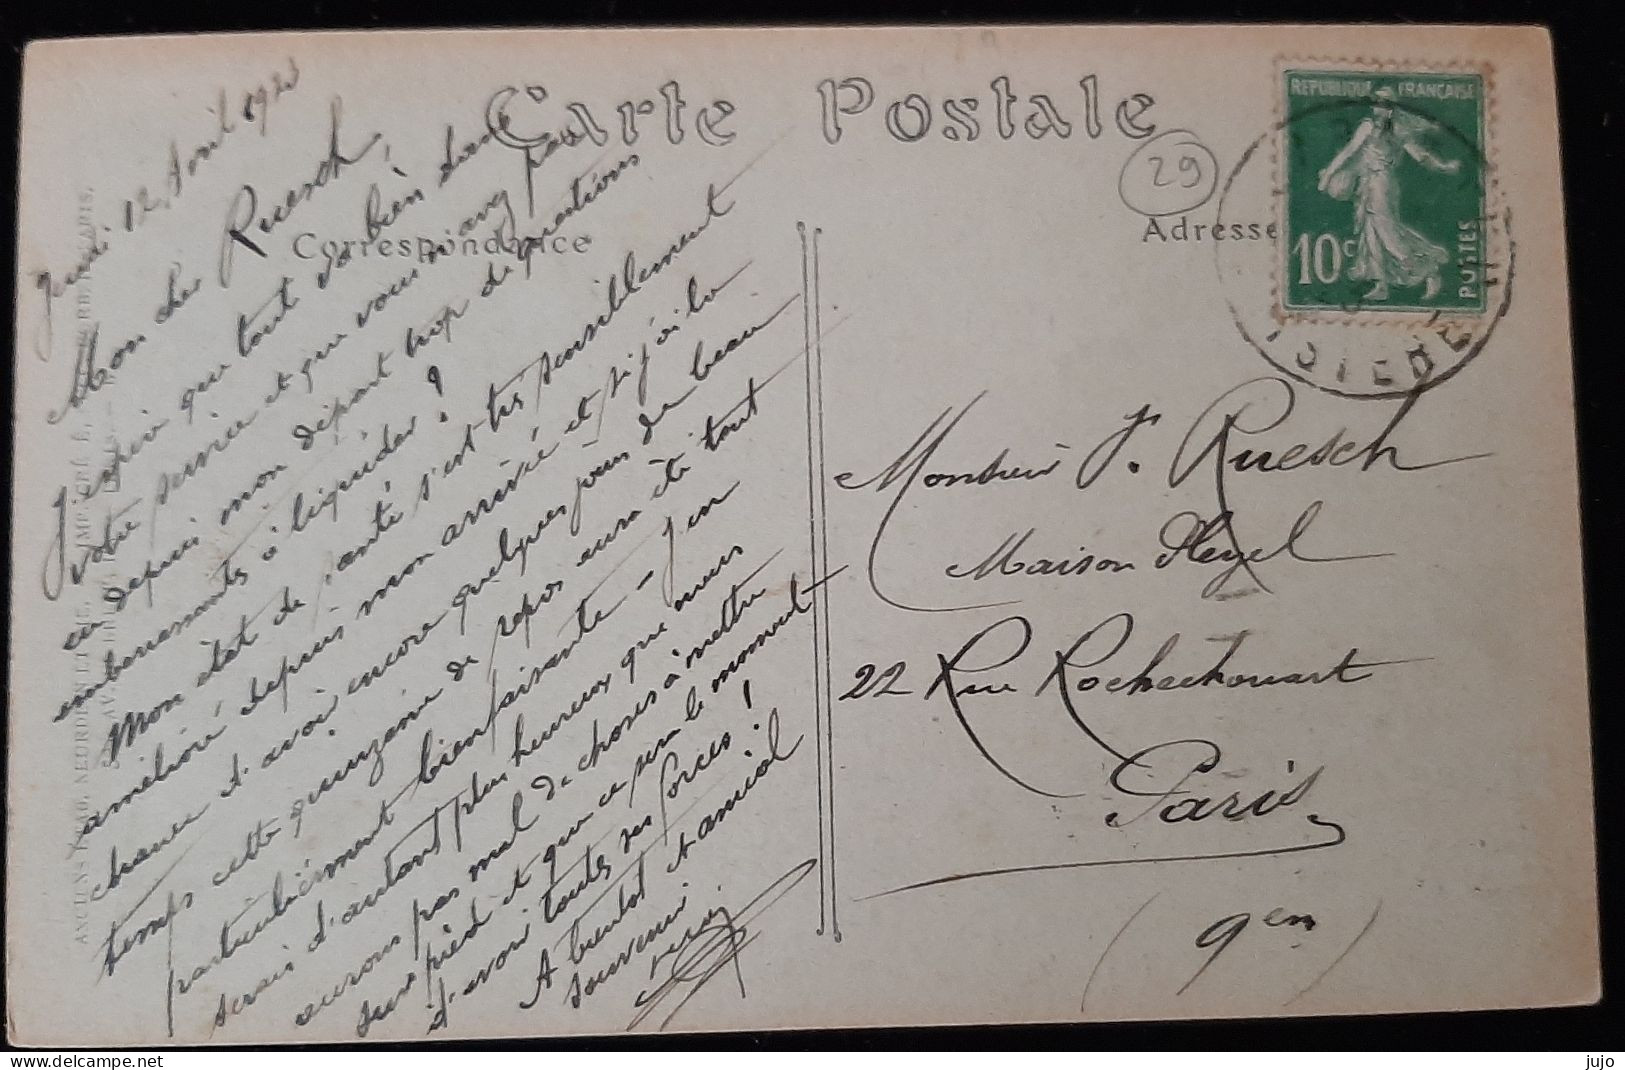 Carte Postale
Correspondance
Adresse
29
RÉPUBLIQUE FRANÇAISE
10c
POSTES
12 Avril 192
Mon cher Ruesch,
J'espère que tout va bien dans
votre service et que vous n'avez pas
eu depuis mon départ trop de questions
embarrassantes à liquider!
Mon état de santé s'est très sensiblement
amélioré depuis mon arrivée et si j'ai la
chance d'avoir encore quelques jours de beau
temps cette quinzaine de repos aura été tout
particulièrement bienfaisante – J'en
serais d'autant plus heureux que nous
aurons pas mal de choses à mettre
sur pied et que ce sera le moment
d'avoir toutes ses forces!
A bientôt et amical
souvenir
Monsieur J. Ruesch
Maison Pleyel
22 Rue Rochechouart
Paris
(9em)
jujo